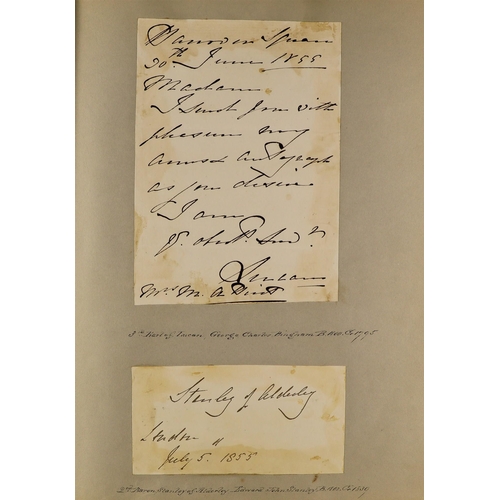 Hanover Square
30th June 1855
Madam
I send you with
pleasure my
annexed autograph
as you desire
I am
Yr. obedt. Servt.
Lucan
Mrs M. A
3rd Earl of Lucan, George Charles Bingham
Stanley of Alderley
London "
July 5. 1855
2nd Baron Stanley of Alderley, Edward John Stanley